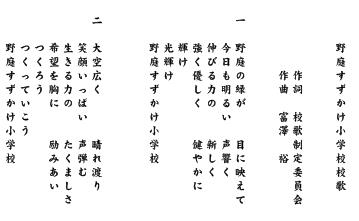 野庭すずかけ小学校校歌
作詞 校歌制定委員会
作曲 富澤 裕
一 野庭の緑が 目に映えて
今日も明るい 声響く
伸びる力の 新しく
強く優しく 健やかに
輝け
光輝け
野庭すずかけ小学校
二 大空広く 晴れ渡り
笑顔いっぱい 声弾む
生きる力の たくましさ
希望を胸に 励みあい
つくろう
つくっていこう
野庭すずかけ小学校